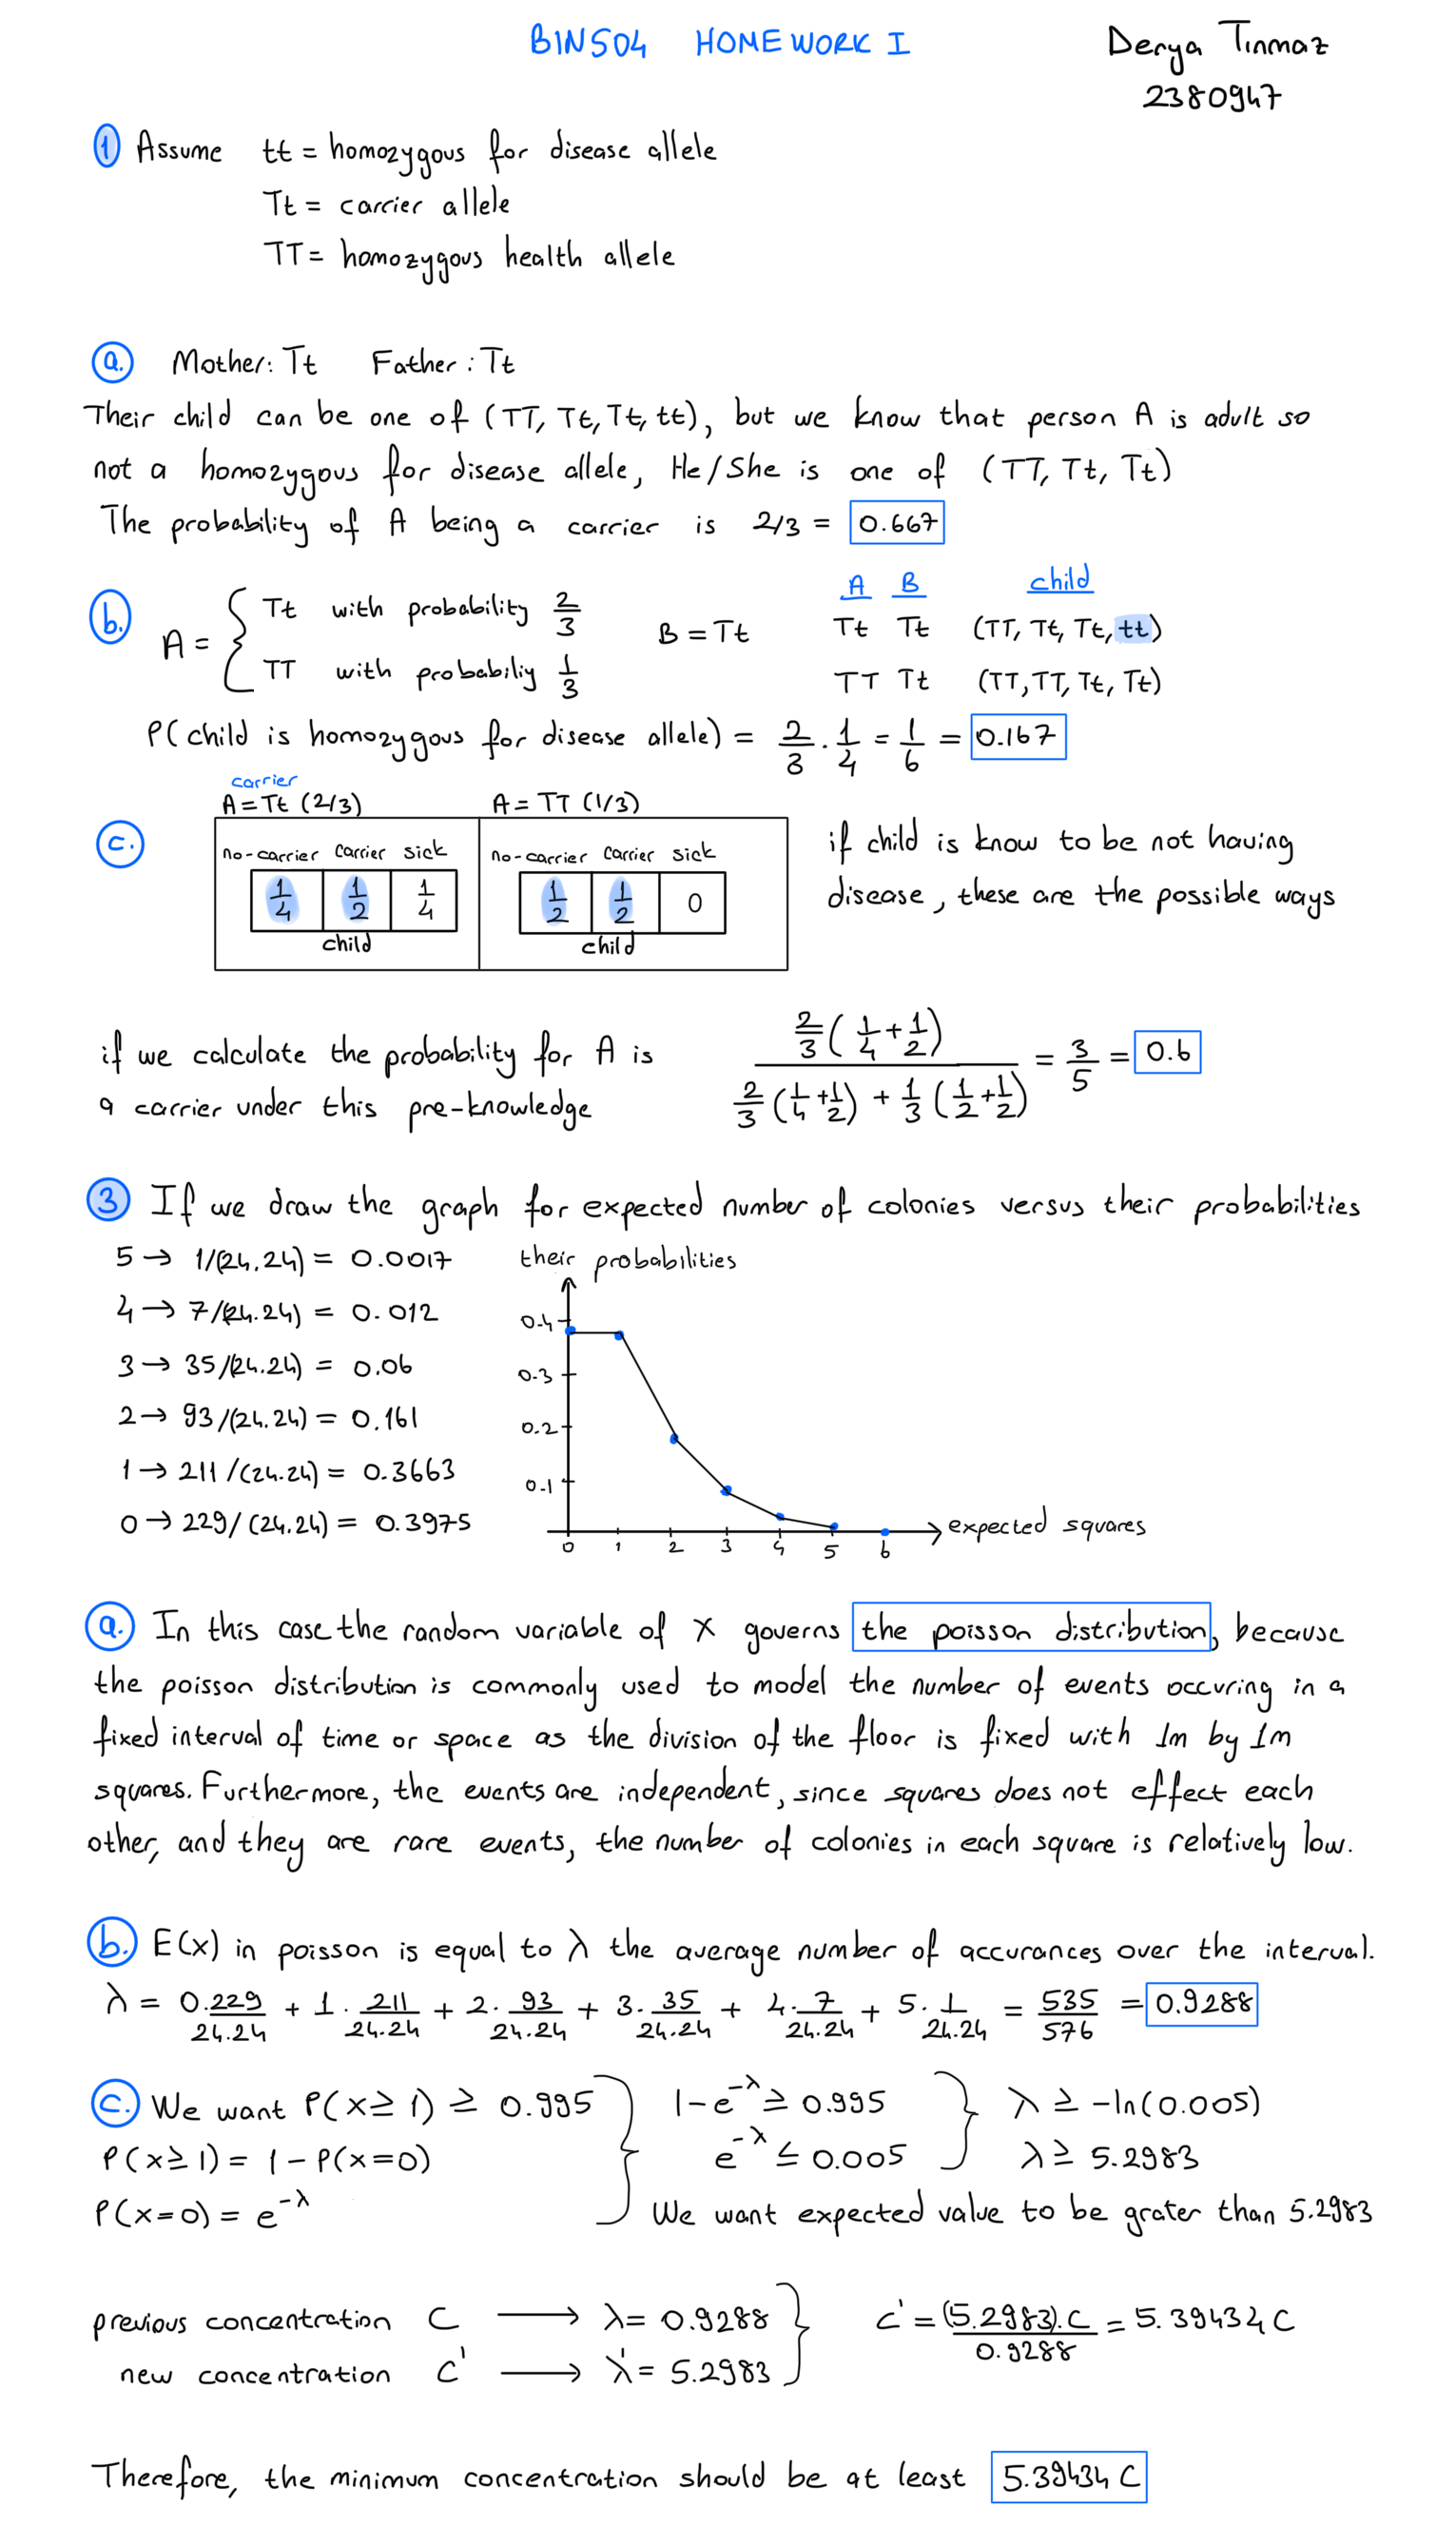 BIN504 HOMEWORK I
Derya Tınmaz
2380947
1 Assume tt = homozygous for disease allele
Tt = carrier allele
TT = homozygous health allele
a. Mother: Tt Father: Tt
Their child can be one of (TT, Tt, Tt, tt), but we know that person A is adult so
not a homozygous for disease allele, He/She is one of (TT, Tt, Tt)
The probability of A being a carrier is 2/3 = 0.667
b. A = { Tt with probability 2/3
TT with probabiliy 1/3
B = Tt
A B child
Tt Tt (TT, Tt, Tt, tt)
TT Tt (TT, TT, Tt, Tt)
P(child is homozygous for disease allele) = 2/3 . 1/4 = 1/6 = 0.167
carrier
A = Tt (2/3) A = TT (1/3)
c.
no-carrier carrier sick no-carrier carrier sick
1/4 1/2 1/4 1/2 1/2 0
child child
if child is know to be not having
disease, these are the possible ways
if we calculate the probability for A is
a carrier under this pre-knowledge
2/3 (1/4 + 1/2) / 2/3 (1/4 + 1/2) + 1/3 (1/2 + 1/2) = 3/5 = 0.6
3 If we draw the graph for expected number of colonies versus their probabilities
5 → 1/(24.24) = 0.0017
4 → 7/(24.24) = 0.012
3 → 35/(24.24) = 0.06
2 → 93/(24.24) = 0.161
1 → 211/(24.24) = 0.3663
0 → 229/(24.24) = 0.3975
their probabilities
0.4
0.3
0.2
0.1
0 1 2 3 4 5 6
expected squares
a. In this case the random variable of x governs the poisson distribution, because
the poisson distribution is commonly used to model the number of events occuring in a
fixed interval of time or space as the division of the floor is fixed with 1m by 1m
squares. Furthermore, the events are independent, since squares does not effect each
other, and they are rare events, the number of colonies in each square is relatively low.
b. E(x) in poisson is equal to λ the average number of accurances over the interval.
λ = 0.229/24.24 + 1. 211/24.24 + 2. 93/24.24 + 3. 35/24.24 + 4. 7/24.24 + 5. 1/24.24 = 535/576 = 0.9288
c. We want P(x ≥ 1) ≥ 0.995
P(x ≥ 1) = 1 - P(x=0)
P(x=0) = e^-λ
1 - e^-λ ≥ 0.995
e^-λ ≤ 0.005
λ ≥ -ln(0.005)
λ ≥ 5.2983
We want expected value to be grater than 5.2983
previous concentration C → λ = 0.9288
new concentration C' → λ' = 5.2983
C' = (5.2983).C / 0.9288 = 5.39434 C
Therefore, the minimum concentration should be at least 5.39434 C